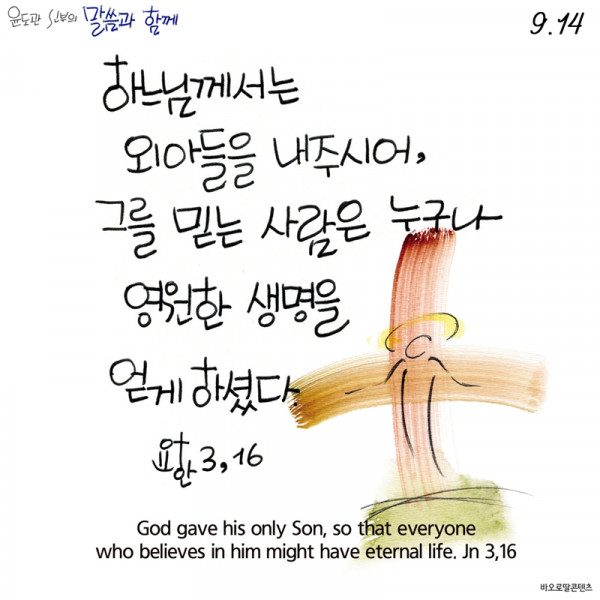 윤도관 신부의 말씀과 함께
9.14
하느님께서는
외아들을 내주시어,
그를 믿는 사람은 누구나
영원한 생명을
얻게 하셨다.
요한 3,16
God gave his only Son, so that everyone
who believes in him might have eternal life. Jn 3,16
바오로딸콘텐츠